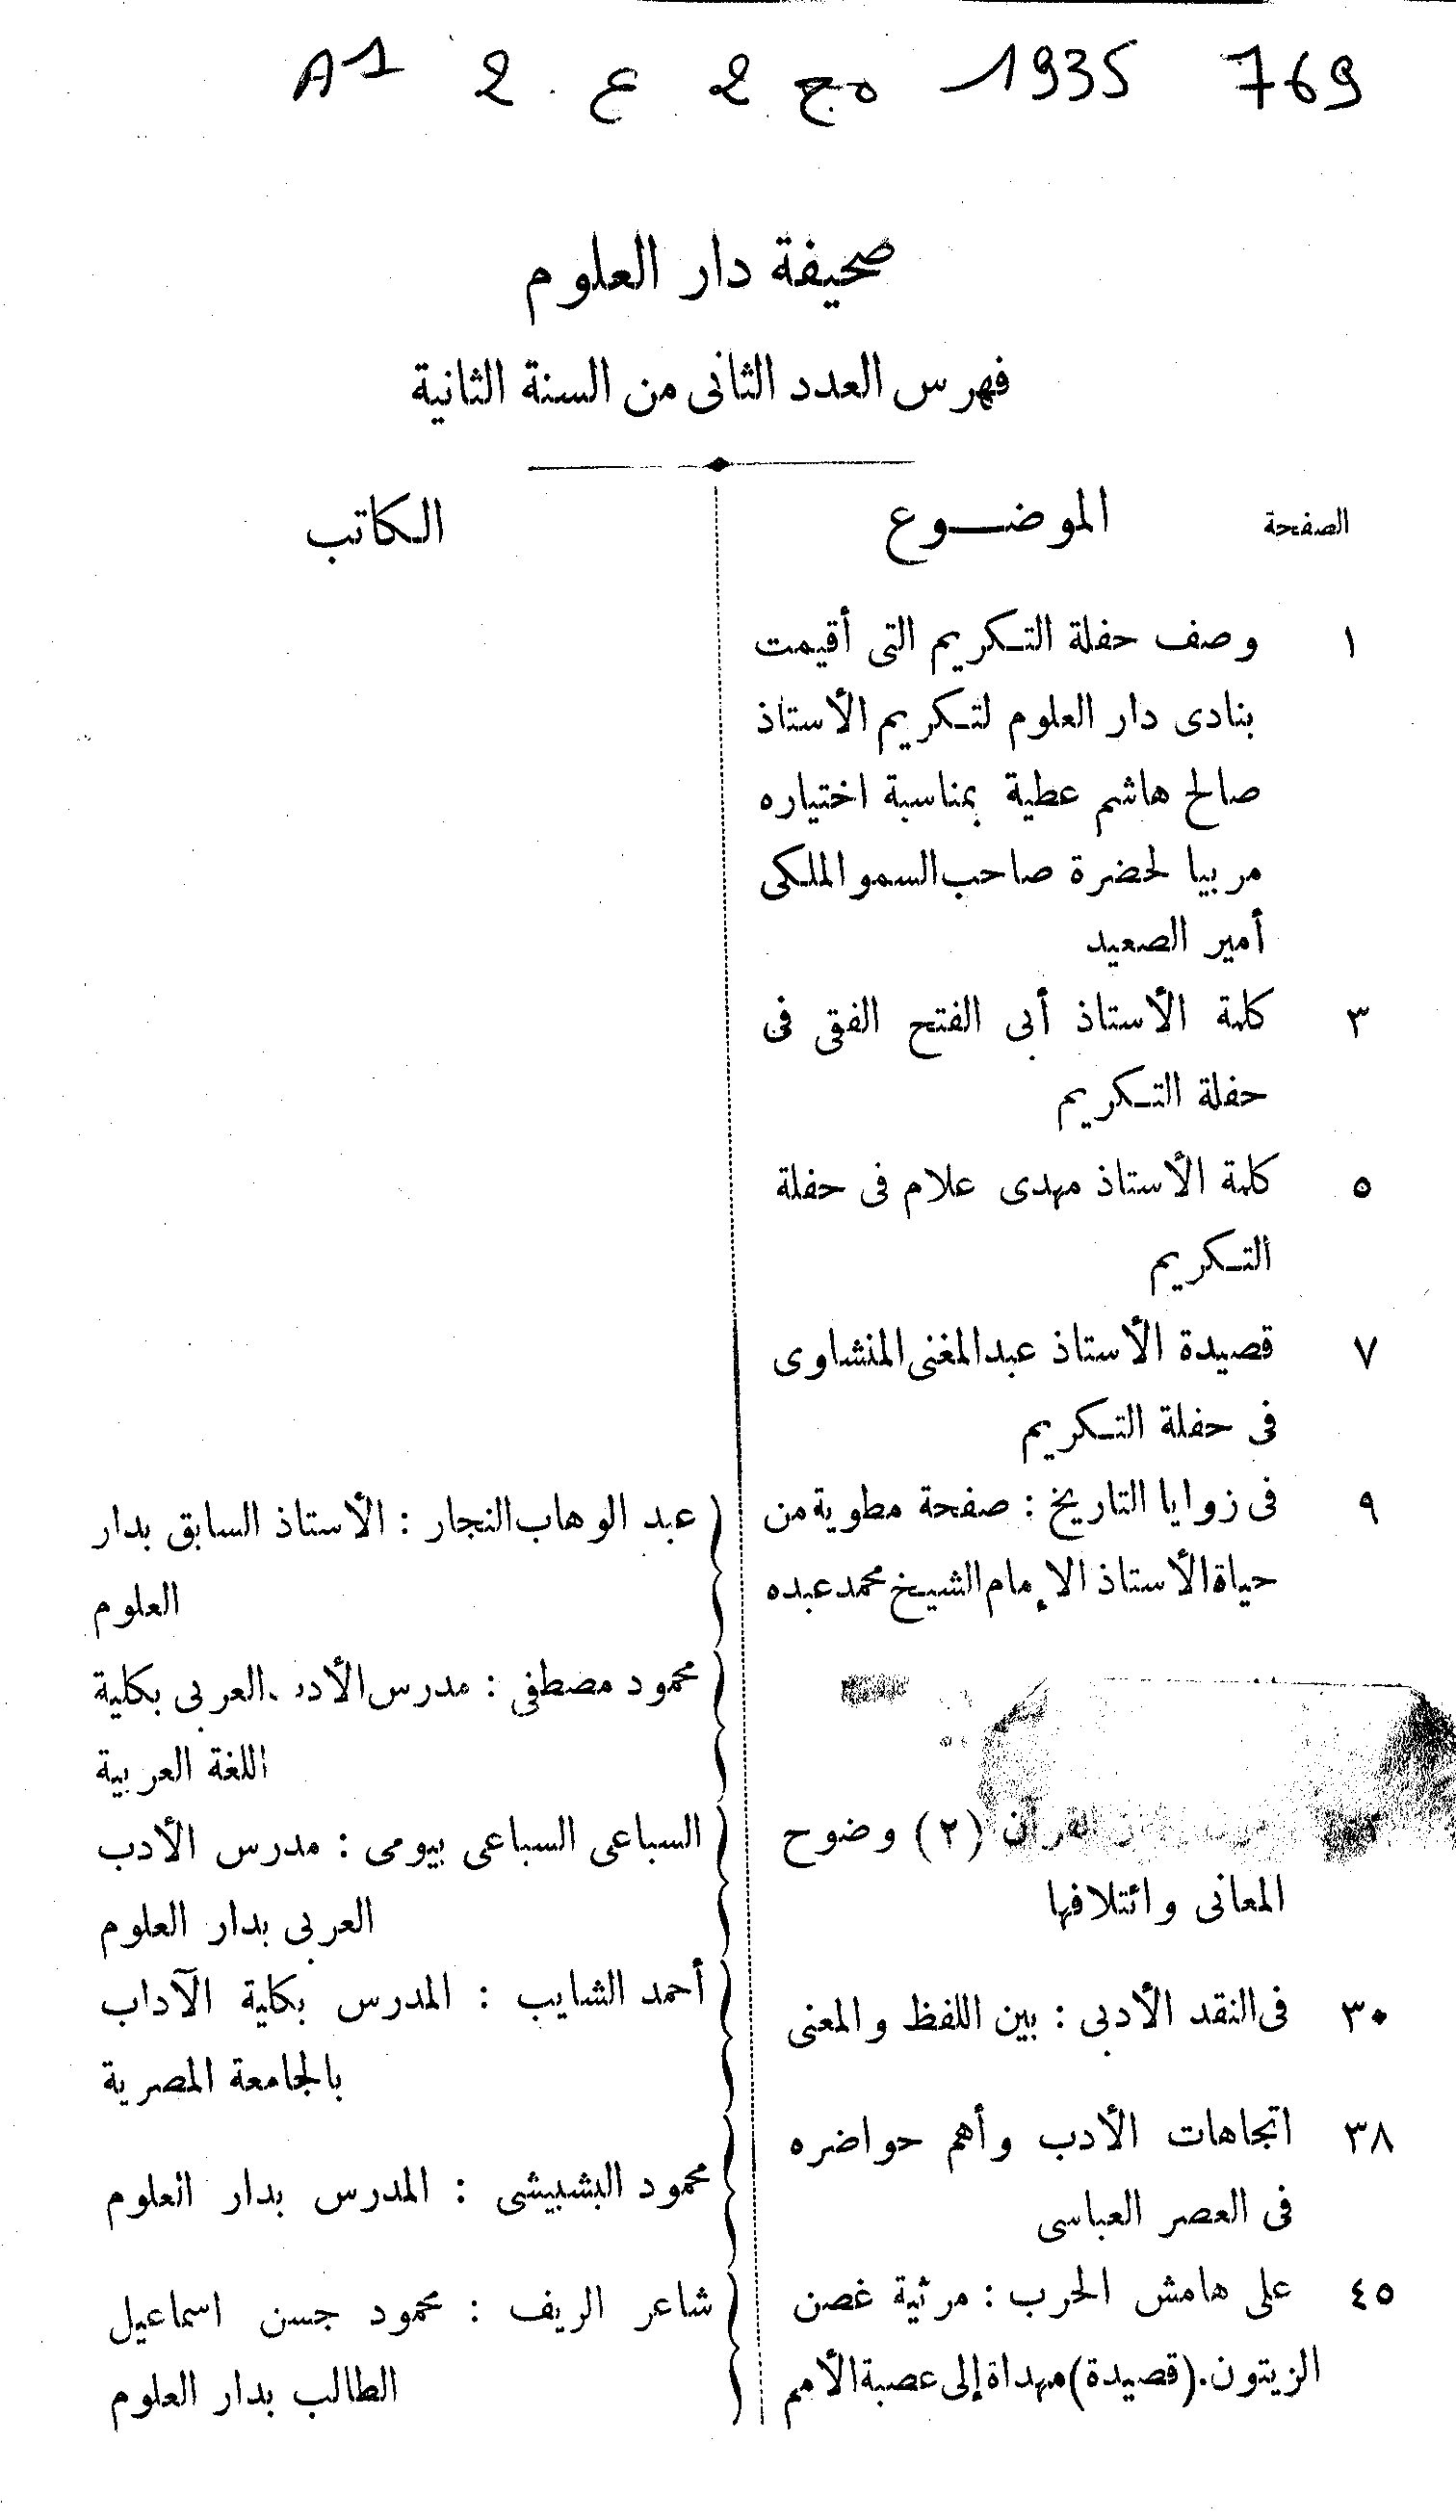 769 1935 مج 2 ع 2 A1
صحيفة دار العلوم
فهرس العدد الثانى من السنة الثانية
الصفحة الموضــوع الكاتب
١ وصف حفلة التكريم التى أقيمت
بنادى دار العلوم لتكريم الأستاذ
صالح هاشم عطية بمناسبة اختياره
مربيا لحضرة صاحب السمو الملكى
أمير الصعيد
٣ كلمة الأستاذ أبى الفتح الفقى فى
حفلة التكريم
٥ كلمة الأستاذ مهدى علام فى حفلة
التكريم
٧ قصيدة الأستاذ عبد المغنى المنشاوى
فى حفلة التكريم
٩ فى زوايا التاريخ : صفحة مطوية من عبد الوهاب النجار : الأستاذ السابق بدار
حياة الأستاذ الإمام الشيخ محمد عبده العلوم
محمود مصطفى : مدرس الأدب العربى بكلية
اللغة العربية
القرآن (٢) وضوح السباعى السباعى بيومى : مدرس الأدب
المعانى وائتلافها العربى بدار العلوم
٣٠ فى النقد الأدبى : بين اللفظ والمعنى أحمد الشايب : المدرس بكلية الآداب
بالجامعة المصرية
٣٨ اتجاهات الأدب وأهم حواضره محمود البشبيشى : المدرس بدار العلوم
فى العصر العباسى
٤٥ على هامش الحرب : مرثية غصن شاعر الريف : محمود حسن اسماعيل
الزيتون. (قصيدة) مهداة إلى عصبة الأمم الطالب بدار العلوم